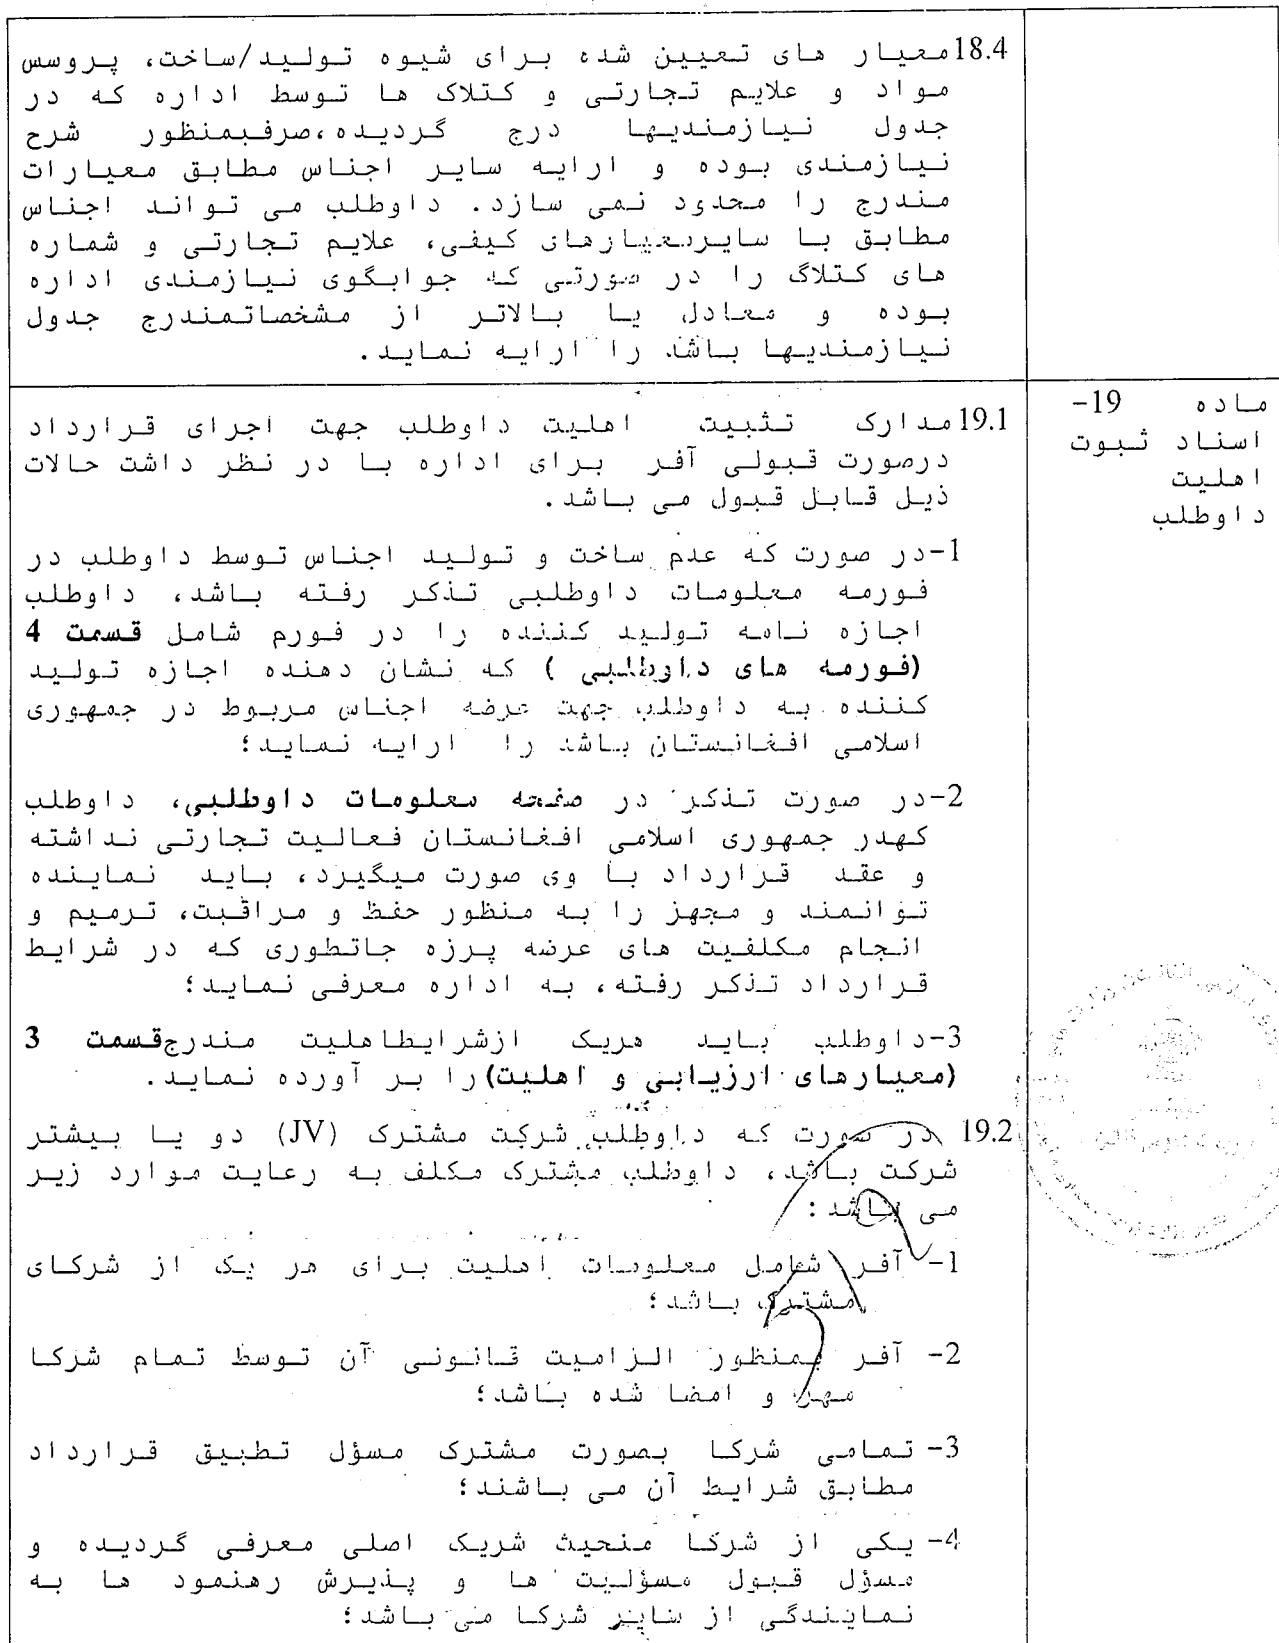 18.4 معیار های تعیین شده برای شیوه تولید/ساخت، پروسس
مواد و علایم تجارتی و کتلاک ها توسط اداره که در
جدول نیازمندیها درج گردیده،صرفبمنظور شرح
نیازمندی بوده و ارایه سایر اجناس مطابق معیارات
مندرج را محدود نمی سازد. داوطلب می تواند اجناس
مطابق با سایرمعیارهای کیفی، علایم تجارتی و شماره
های کتلاگ را در صورتی که جوابگوی نیازمندی اداره
بوده و معادل یا بالاتر از مشخصاتمندرج جدول
نیازمندیها باشد را ارایه نماید.
ماده 19-
اسناد ثبوت
اهلیت
داوطلب
19.1 مدارک تثبیت اهلیت داوطلب جهت اجرای قرارداد
درصورت قبولی آفر برای اداره با در نظر داشت حالات
ذیل قابل قبول می باشد.
1- در صورت که عدم ساخت و تولید اجناس توسط داوطلب در
فورمه معلومات داوطلبی تذکر رفته باشد، داوطلب
اجازه نامه تولید کننده را در فورم شامل قسمت 4
(فورمه های داوطلبی ) که نشان دهنده اجازه تولید
کننده به داوطلب جهت عرضه اجناس مربوط در جمهوری
اسلامی افغانستان باشد را ارایه نماید؛
2- در صورت تذکر در صفحه معلومات داوطلبی، داوطلب
کهدر جمهوری اسلامی افغانستان فعالیت تجارتی نداشته
و عقد قرارداد با وی صورت میگیرد، باید نماینده
توانمند و مجهز را به منظور حفظ و مراقبت، ترمیم و
انجام مکلفیت های عرضه پرزه جاتطوری که در شرایط
قرارداد تذکر رفته، به اداره معرفی نماید؛
3- داوطلب باید هریک ازشرایطاهلیت مندرجقسمت 3
(معیارهای ارزیابی و اهلیت) را بر آورده نماید.
19.2 در صورت که داوطلب شرکت مشترک (JV) دو یا بیشتر
شرکت باشد، داوطلب مشترک مکلف به رعایت موارد زیر
می باشد:
1- آفر شامل معلومات اهلیت برای هر یک از شرکای
مشترک باشد؛
2- آفر بمنظور الزامیت قانونی آن توسط تمام شرکا
مهر و امضا شده باشد؛
3- تمامی شرکا بصورت مشترک مسؤل تطبیق قرارداد
مطابق شرایط آن می باشند؛
4- یکی از شرکا منحیث شریک اصلی معرفی گردیده و
مسؤل قبول مسؤلیت ها و پذیرش رهنمود ها به
نمایندگی از سایر شرکا می باشد؛